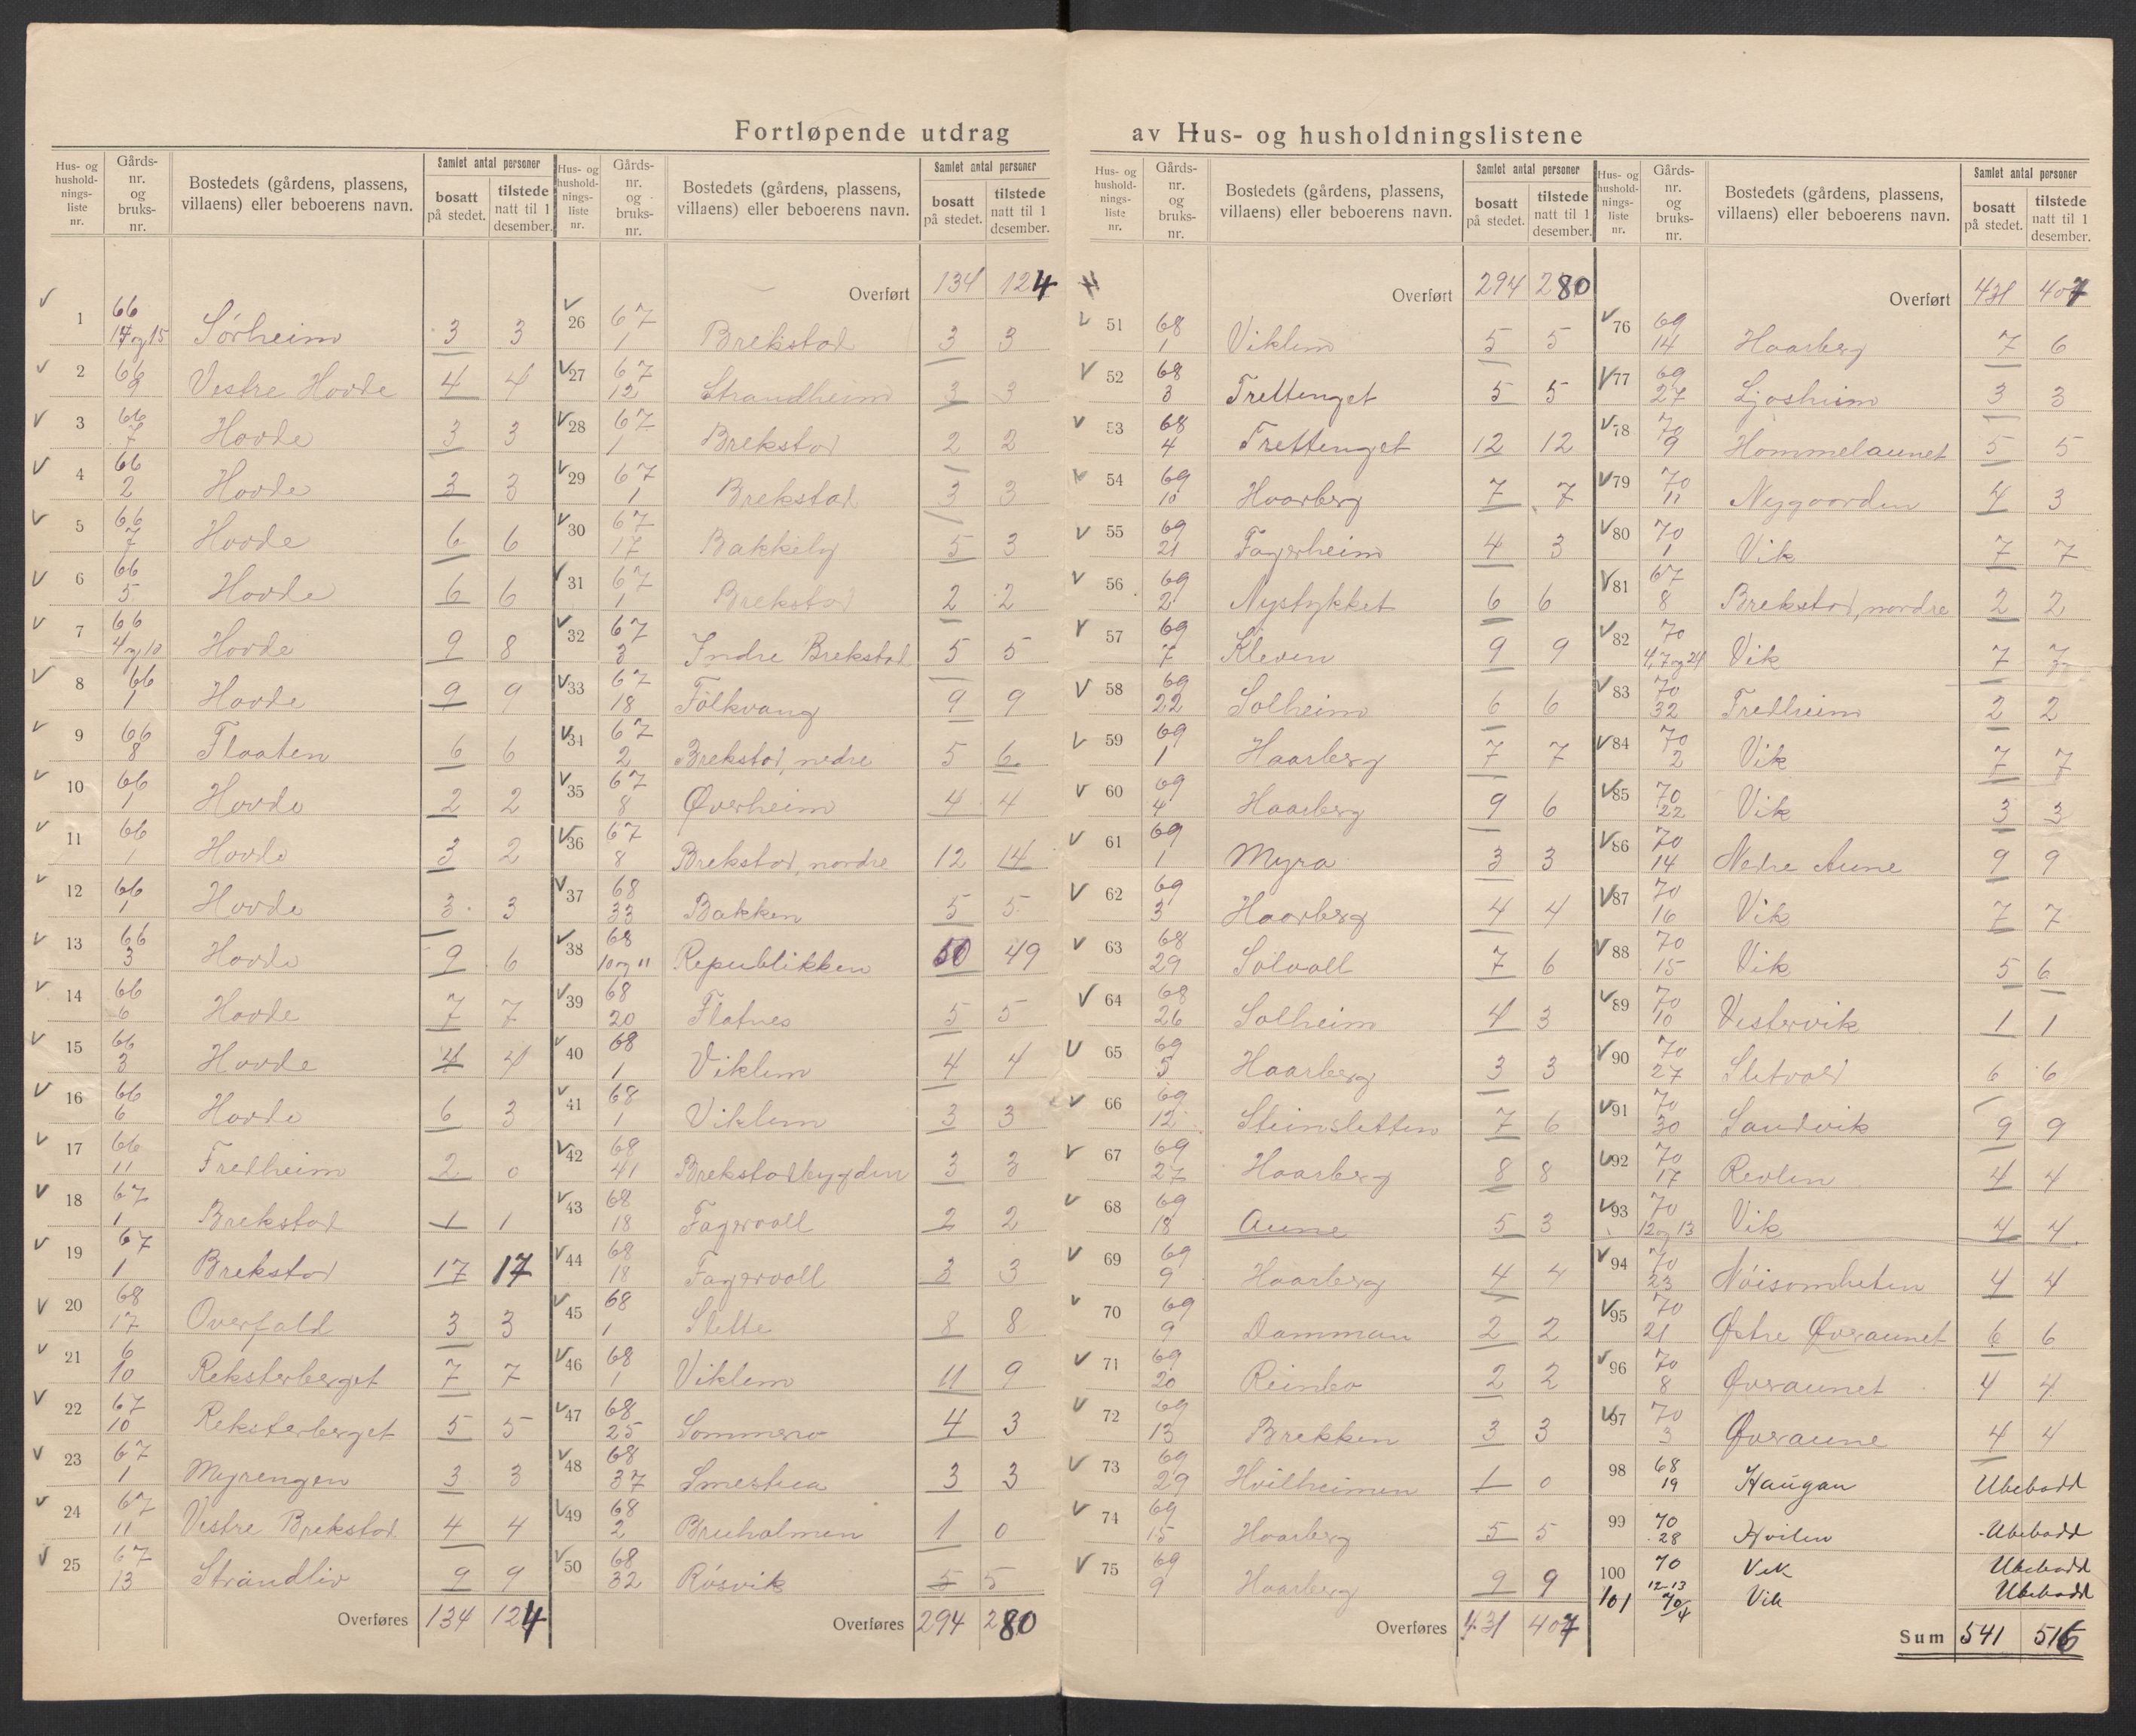 Fortløpende utdrag av Hus- og husholdningslistene
Hus- og husholdningsliste nr. | Gårdsnr. og bruksnr. | Bostedets (gårdens, plassens, villaens) eller beboerens navn. | Samlet antal personer bosatt på stedet. | tilstede natt til 1 desember.
1 | 66 17 og 15 | Sørheim | 3 | 3
2 | 66 9 | Vestre Hovde | 4 | 4
3 | 66 7 | Hovde | 3 | 3
4 | 66 2 | Hovde | 3 | 3
5 | 66 7 | Hovde | 6 | 6
6 | 66 5 | Hovde | 6 | 6
7 | 66 4 og 10 | Hovde | 9 | 8
8 | 66 1 | Hovde | 9 | 9
9 | 66 8 | Flaaten | 6 | 6
10 | 66 1 | Hovde | 2 | 2
11 | 66 1 | Hovde | 3 | 2
12 | 66 1 | Hovde | 3 | 3
13 | 66 3 | Hovde | 9 | 6
14 | 66 6 | Hovde | 7 | 7
15 | 66 3 | Hovde | 4 | 4
16 | 66 6 | Hovde | 6 | 3
17 | 66 11 | Fredheim | 2 | 0
18 | 67 1 | Brekstad | 1 | 1
19 | 67 1 | Brekstad | 17 | 17
20 | 68 17 | Overfald | 3 | 3
21 | 6 10 | Reksterberget | 7 | 7
22 | 67 10 | Reksterberget | 5 | 5
23 | 67 1 | Myrengen | 3 | 3
24 | 67 11 | Vestre Brekstad | 4 | 4
25 | 67 13 | Strandliv | 9 | 9
Overføres 134 124
Hus- og husholdningsliste nr. | Gårdsnr. og bruksnr. | Bostedets (gårdens, plassens, villaens) eller beboerens navn. | Samlet antal personer bosatt på stedet. | tilstede natt til 1 desember.
Overført 134 124
26 | 67 1 | Brekstad | 3 | 3
27 | 67 12 | Strandheim | 3 | 3
28 | 67 1 | Brekstad | 2 | 2
29 | 67 1 | Brekstad | 3 | 3
30 | 67 17 | Bakkely | 5 | 3
31 | 67 1 | Brekstad | 2 | 2
32 | 67 3 | Indre Brekstad | 5 | 5
33 | 67 18 | Folkvang | 9 | 9
34 | 67 2 | Brekstad, nedre | 5 | 6
35 | 67 8 | Øverheim | 4 | 4
36 | 67 8 | Brekstad, nordre | 12 | 14
37 | 68 33 | Bakken | 5 | 5
38 | 68 10 og 11 | Republikken | 50 | 49
39 | 68 20 | Flatnes | 5 | 5
40 | 68 1 | Viklem | 4 | 4
41 | 68 1 | Viklem | 3 | 3
42 | 68 41 | Brekstadbygden | 3 | 3
43 | 68 18 | Fagervoll | 2 | 2
44 | 68 18 | Fagervoll | 3 | 3
45 | 68 1 | Slette | 8 | 8
46 | 68 1 | Viklem | 11 | 9
47 | 68 25 | Sommerro | 4 | 3
48 | 68 37 | Smestua | 3 | 3
49 | 68 2 | Bruholmen | 1 | 0
50 | 68 32 | Røsvik | 5 | 5
Overføres 294 280
Hus- og husholdningsliste nr. | Gårdsnr. og bruksnr. | Bostedets (gårdens, plassens, villaens) eller beboerens navn. | Samlet antal personer bosatt på stedet. | tilstede natt til 1 desember.
Overført 294 280
51 | 68 1 | Viklem | 5 | 5
52 | 68 3 | Trettenget | 5 | 5
53 | 68 4 | Trettenget | 12 | 12
54 | 69 10 | Haarberg | 7 | 7
55 | 69 21 | Fagerheim | 4 | 3
56 | 69 2 | Nystykket | 6 | 6
57 | 69 7 | Kleven | 9 | 9
58 | 69 22 | Solheim | 6 | 6
59 | 69 1 | Haarberg | 7 | 7
60 | 69 4 | Haarberg | 9 | 6
61 | 69 1 | Myra | 3 | 3
62 | 69 3 | Haarberg | 4 | 4
63 | 68 29 | Solvoll | 7 | 6
64 | 68 26 | Solheim | 4 | 3
65 | 69 5 | Haarberg | 3 | 3
66 | 69 12 | Steinsletten | 7 | 6
67 | 69 27 | Haarberg | 8 | 8
68 | 69 18 | Aune | 5 | 3
69 | 69 9 | Haarberg | 4 | 4
70 | 69 9 | Damman | 2 | 2
71 | 69 20 | Reinbo | 2 | 2
72 | 69 13 | Brekken | 3 | 3
73 | 69 29 | Hvilheimen | 1 | 0
74 | 69 15 | Haarberg | 5 | 5
75 | 69 9 | Haarberg | 9 | 9
Overføres 431 407
Hus- og husholdningsliste nr. | Gårdsnr. og bruksnr. | Bostedets (gårdens, plassens, villaens) eller beboerens navn. | Samlet antal personer bosatt på stedet. | tilstede natt til 1 desember.
Overført 431 407
76 | 69 14 | Haarberg | 7 | 6
77 | 69 27 | Ljosheim | 3 | 3
78 | 70 9 | Hommelaunet | 5 | 5
79 | 70 11 | Nygaarden | 4 | 3
80 | 70 1 | Vik | 7 | 7
81 | 67 8 | Brekstad, nordre | 2 | 2
82 | 70 4,7 og 24 | Vik | 7 | 7
83 | 70 32 | Fredheim | 2 | 2
84 | 70 2 | Vik | 7 | 7
85 | 70 22 | Vik | 3 | 3
86 | 70 14 | Nedre Aune | 9 | 9
87 | 70 16 | Vik | 7 | 7
88 | 70 15 | Vik | 5 | 6
89 | 70 10 | Vestervik | 1 | 1
90 | 70 27 | Sletvold | 6 | 6
91 | 70 30 | Sandvik | 9 | 9
92 | 70 17 | Revlen | 4 | 4
93 | 70 12 og 13 | Vik | 4 | 4
94 | 70 23 | Nøisomheten | 4 | 4
95 | 70 21 | Østre Øveraunet | 6 | 6
96 | 70 8 | Øveraunet | 4 | 4
97 | 70 3 | Øveraune | 4 | 4
98 | 68 19 | Haugan | Ubebodd
99 | 70 28 | Hvilen | Ubebodd
100 | 70 12-13 | Vik | Ubebodd
101 | 70/4 | Vik | Ubebodd
Sum 541 516